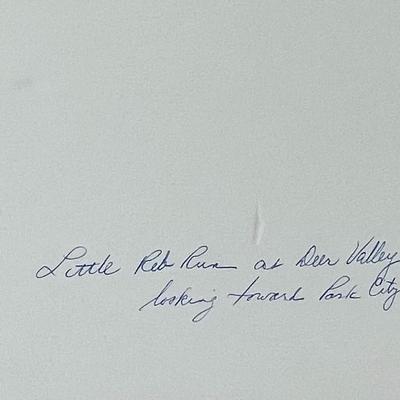 Little Reb Run at Deer Valley
looking toward Park City